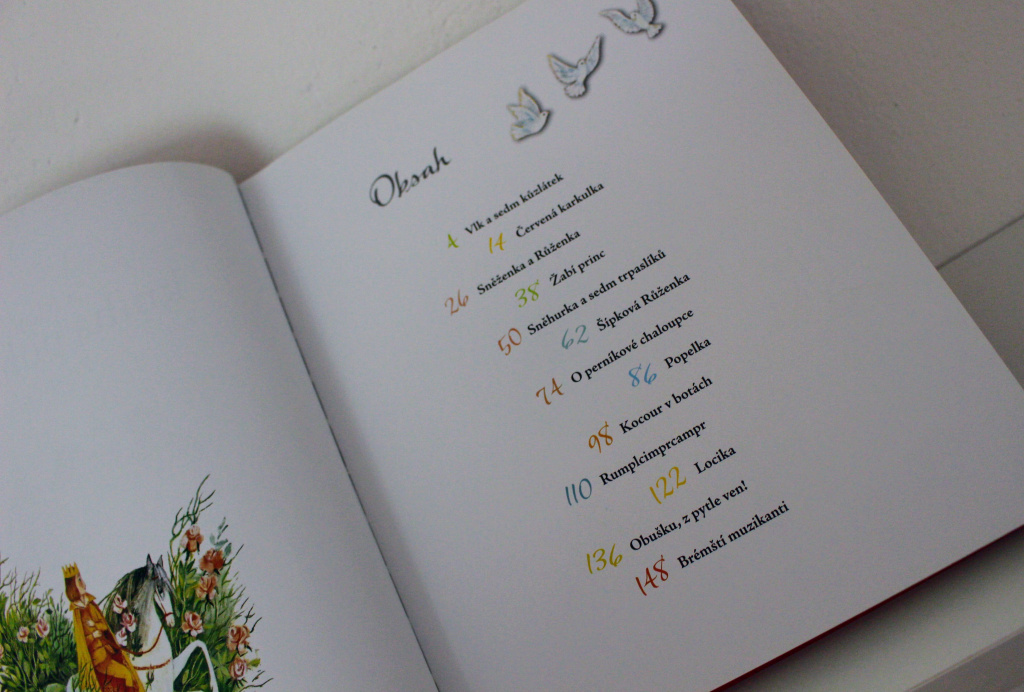 Obsah
4 Vlk a sedm kůzlátek
14 Červená karkulka
26 Sněženka a Růženka
38 Žabí princ
50 Sněhurka a sedm trpaslíků
62 Šípková Růženka
74 O perníkové chaloupce
86 Popelka
98 Kocour v botách
110 Rumplcimprcampr
122 Locika
136 Obušku, z pytle ven!
148 Brémští muzikanti